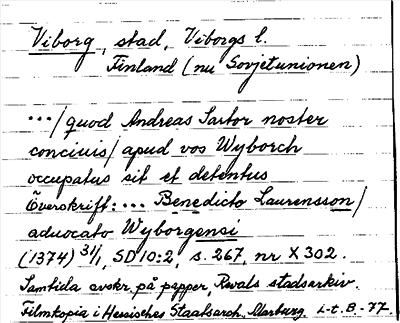 Viborg, stad, Viborgs l.
Finland (nu Sovjetunionen)
.../quod Andreas Sartor noster
conciuis/ apud vos Wyborch
occupatus sit et detentus
Överskrift: ... Benedicto Laurensson/
aduocato Wyborgensi
(1374) 31/1, SD 10:2, s. 267, nr X 302.
Samtida avskr. på papper, Revals stadsarkiv.
Filmkopia i Hessisches Staatsarch. Marburg. L-t. B.-77.